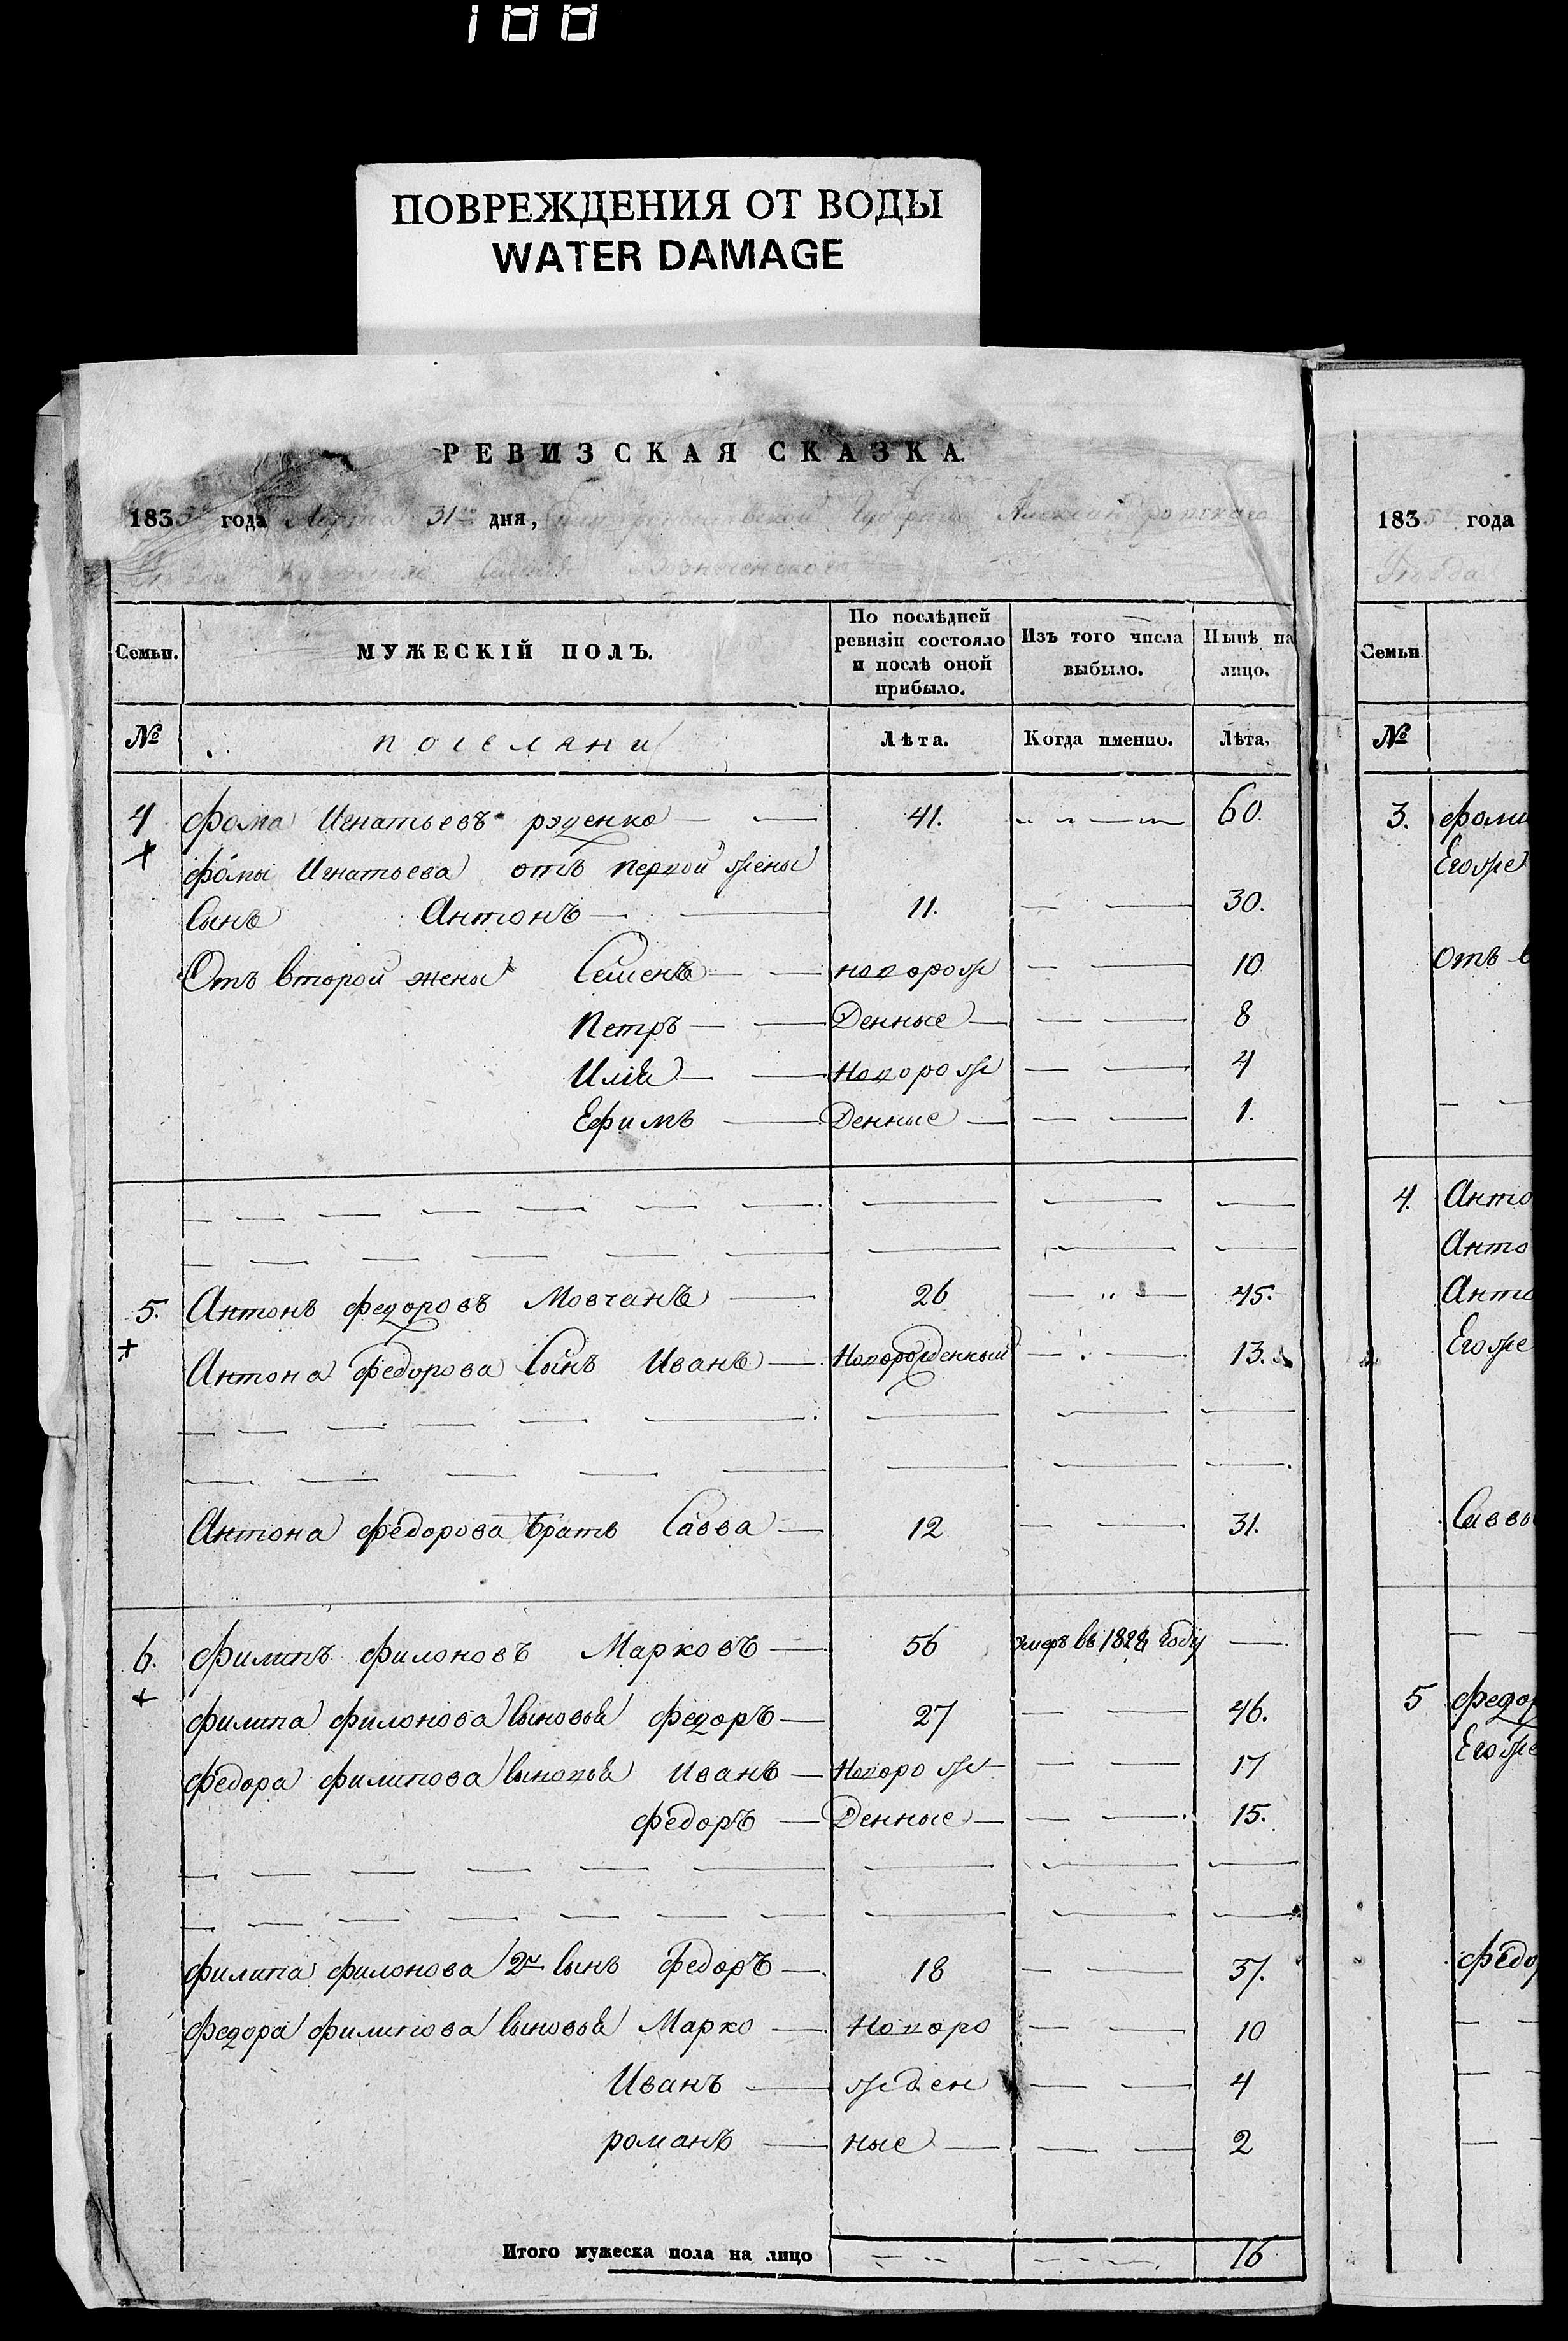 100
ПОВРЕЖДЕНИЯ ОТ ВОДЫ
WATER DAMAGE
РЕВИЗСКАЯ СКАЗКА.
1835 года Марта 31го дня, Екатеринославской Губернии Александровскаго
Уѣзда Селенія Вознесенскаго
Семьи. МУЖЕСКІЙ ПОЛЪ. По послѣдней ревизіи состояло и послѣ оной прибыло. Изъ того числа выбыло. Нынѣ на лицо.
№ поселяни Лѣта. Когда именно. Лѣта.
4 Фома Игнатьевъ Руденко 41. 60.
Фомы Игнатьева отъ первой жены
Сынъ Антонъ 11. 30.
Отъ второй жены Семенъ новорож 10
Петръ Денные 8
Илія Новорож 4
Ефимъ Денные 1.
5. Антонъ Федоровъ Мовчанъ 26 45.
Антона Федорова Сынъ Иванъ Новорожденный 13.
Антона Федорова братъ Савва 12 31.
6. Филипъ Филоновъ Марковъ 56 умеръ въ 1824 году
Филипа Филонова сыновья Федоръ 27 46.
Федора Филипова сыновья Иванъ Новорож 17
Федоръ Денные 15.
Филипа Филонова 2й сынъ Федоръ 18 37.
Федора Филипова сыновья Марко Новоро 10
Иванъ жден 4
романъ ные 2
Итого мужеска пола на лицо 16
1835 года
Уѣзда
Семьи.
№
3. Фоми
Егоже
Отъ в
4. Анто
Анто
Анто
Егоже
Саввы
5 Федор
Егоже
Федо